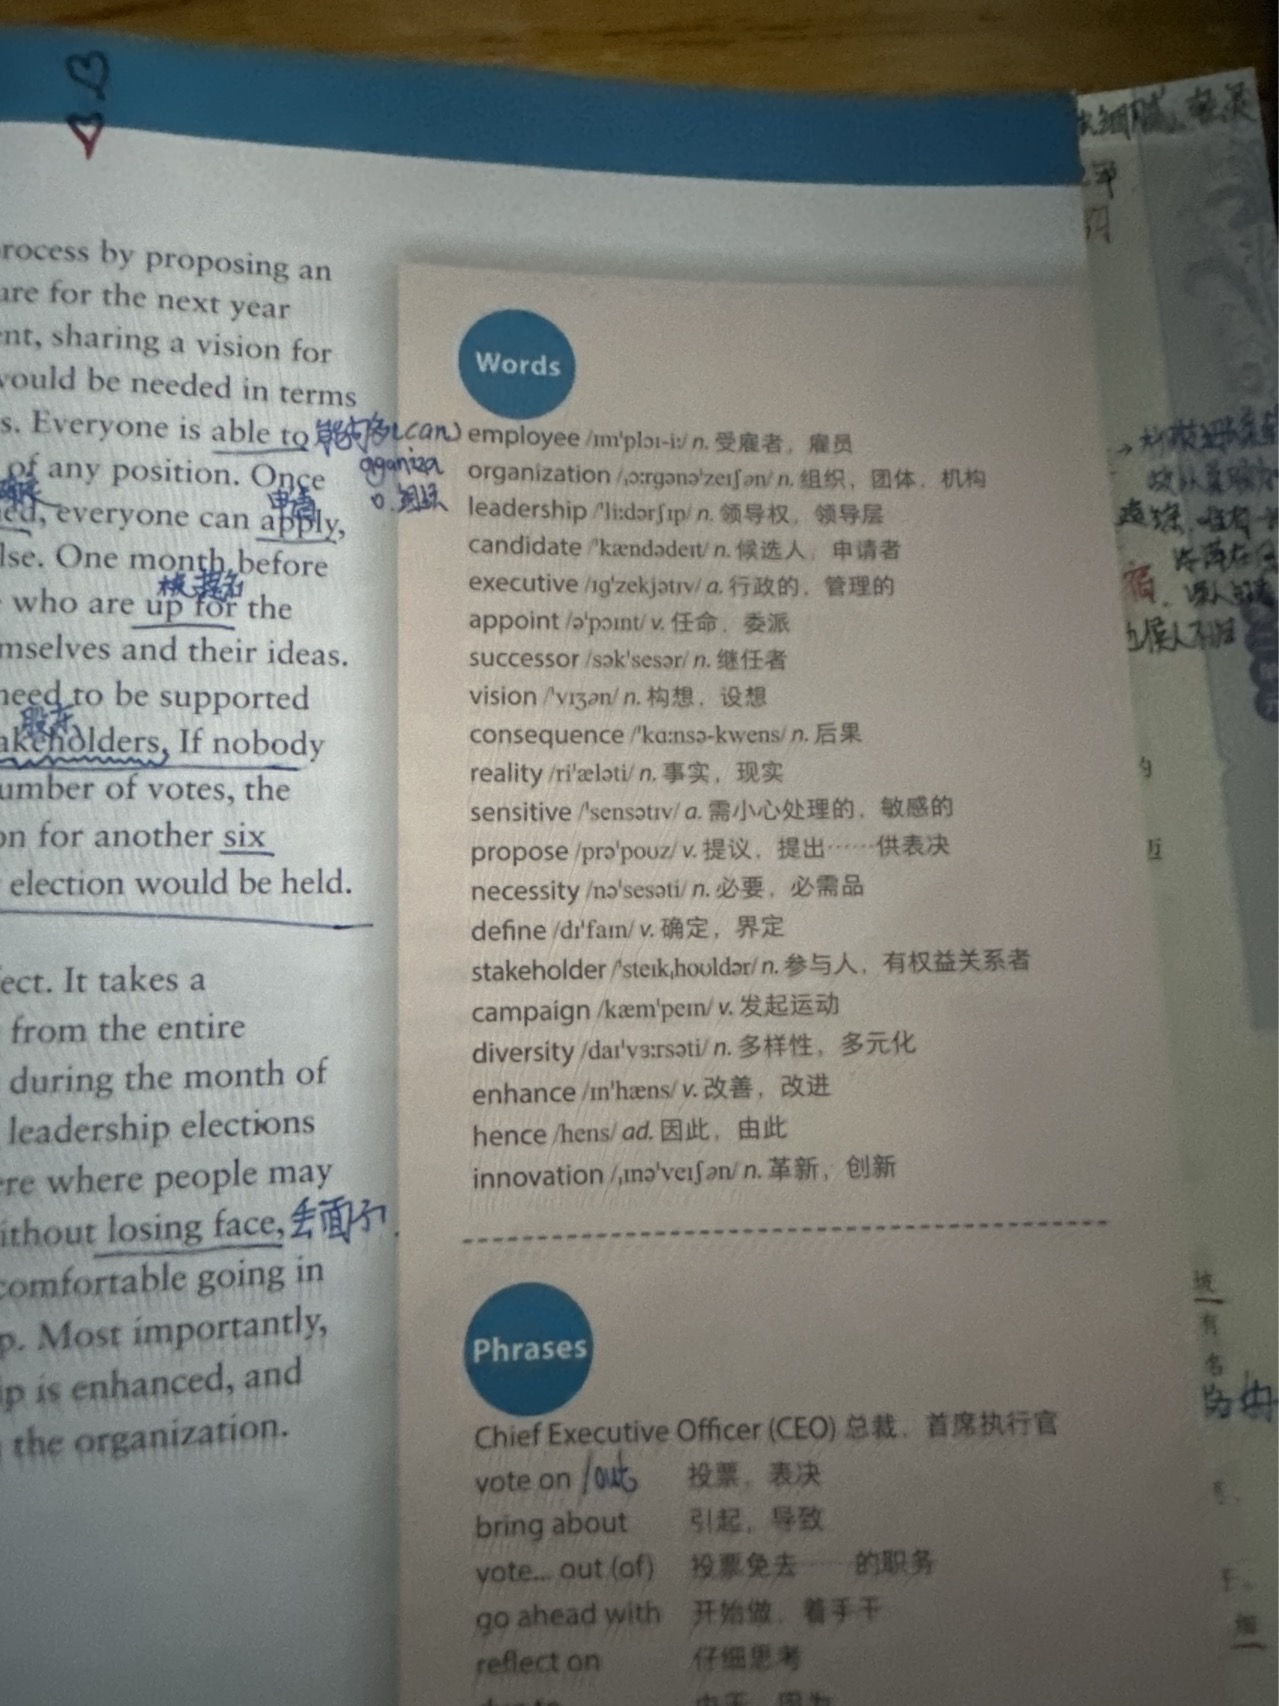 process by proposing an
are for the next year
ent, sharing a vision for
would be needed in terms
s. Everyone is able to 能够(can)
of any position. Once
申请
ed, everyone can apply,
lse. One month before
被提名
who are up for the
mselves and their ideas.
need to be supported
股东
akeholders, If nobody
umber of votes, the
on for another six
election would be held.
ect. It takes a
from the entire
during the month of
leadership elections
ere where people may
ithout losing face, 丢面子.
comfortable going in
p. Most importantly,
ip is enhanced, and
the organization.
oganiza
Words
employee /ɪmˈplɔɪ-iː/ n. 受雇者，雇员
organization /ˌɔːrgənəˈzeɪʃən/ n. 组织，团体，机构
leadership /ˈliːdərʃɪp/ n. 领导权，领导层
candidate /ˈkændədeɪt/ n. 候选人，申请者
executive /ɪgˈzekjətɪv/ a. 行政的，管理的
appoint /əˈpɔɪnt/ v. 任命，委派
successor /səkˈsesər/ n. 继任者
vision /ˈvɪʒən/ n. 构想，设想
consequence /ˈkɑːnsə-kwens/ n. 后果
reality /riˈæləti/ n. 事实，现实
sensitive /ˈsensətɪv/ a. 需小心处理的，敏感的
propose /prəˈpoʊz/ v. 提议，提出……供表决
necessity /nəˈsesəti/ n. 必要，必需品
define /dɪˈfaɪn/ v. 确定，界定
stakeholder /ˈsteɪkˌhoʊldər/ n. 参与人，有权益关系者
campaign /kæmˈpeɪn/ v. 发起运动
diversity /daɪˈvɜːrsəti/ n. 多样性，多元化
enhance /ɪnˈhæns/ v. 改善，改进
hence /hens/ ad. 因此，由此
innovation /ˌɪnəˈveɪʃən/ n. 革新，创新
Phrases
Chief Executive Officer (CEO) 总裁，首席执行官
vote on /out 投票，表决
bring about 引起，导致
vote... out (of) 投票免去……的职务
go ahead with 开始做，着手干
reflect on 仔细思考
due to 由于，因为